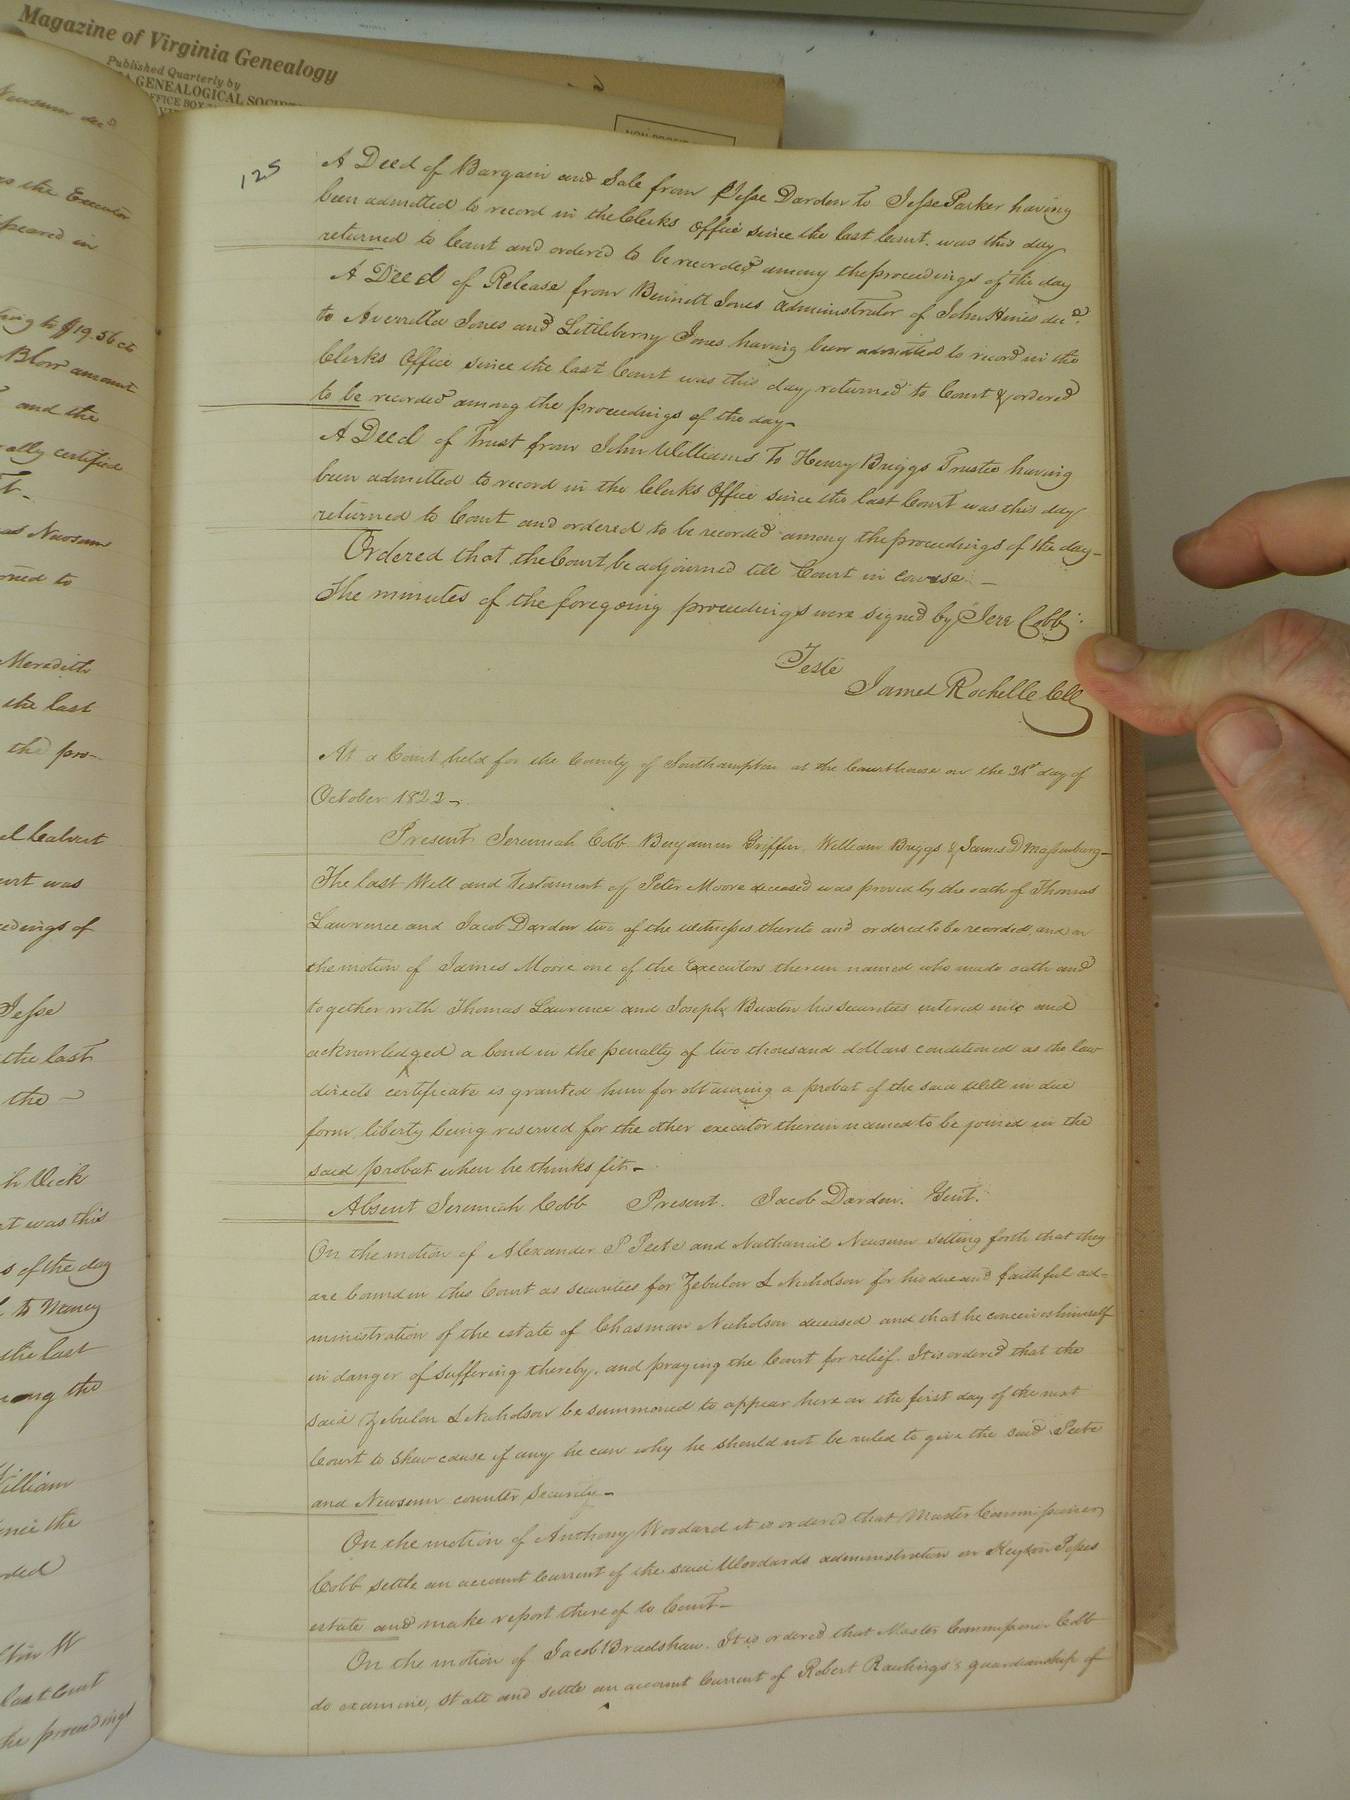 Magazine of Virginia Genealogy
Published Quarterly by
GENEALOGICAL SOCIETY
OFFICE BOX
125
A Deed of Bargain and Sale from Jesse Darden to Jesse Parker having
been admitted to record in the Clerks Office since the last Court was this day
returned to Court and ordered to be recorded among the proceedings of the day
A Deed of Release from Bennett Jones administrator of John Hines decd.
to Averrilla Jones and Littleberry Jones having been admitted to record in the
Clerks Office since the last Court was this day returned to Court & ordered
to be recorded among the proceedings of the day
A Deed of Trust from John Williams To Henry Briggs Trustee having
been admitted to record in the Clerks Office since the last Court was this day
returned to Court and ordered to be recorded among the proceedings of the day—
Ordered that the Court be adjourned till Court in course.—
The minutes of the foregoing proceedings were signed by Jere Cobb
Teste
James Rochelle Clk
At a Court held for the County of Southampton at the Courthouse on the 21st day of
October 1822—
Present Jeremiah Cobb Benjamin Griffin William Briggs & James D Massenburg—
The last Will and Testament of Peter Moore deceased was proved by the oath of Thomas
Lawrence and Jacob Darden two of the witnesses thereto and ordered to be recorded, and on
the motion of James Moore one of the Executors therein named who made oath and
together with Thomas Lawrence and Joseph Buxton his securities entered into and
acknowledged a bond in the penalty of two thousand dollars conditioned as the law
directs certificate is granted him for obtaining a probat of the said Will in due
form, liberty being reserved for the other executor therein named to be joined in the
said probat when he thinks fit—
Absent Jeremiah Cobb Present. Jacob Darden. Gent.
On the motion of Alexander P Peete and Nathaniel Newsum setting forth that they
are bound in this Court as securities for Zebulon L Nicholson for his due and faithful ad-
ministration of the estate of Chasman Nicholson deceased and that he conceives himself
in danger of suffering thereby, and praying the Court for relief. It is ordered that the
said Zebulon L Nicholson be summoned to appear here on the first day of the next
Court to shew cause if any he can why he should not be ruled to give the said Peete
and Newsum counter security—
On the motion of Anthony Woodard it is ordered that Master Commissioner
Cobb settle an account Current of the said Woodards administration on
estate and make report thereof to Court—
On the motion of Jacob Bradshaw. It is ordered that Master Commissioner Cobb
do examine, state and settle an account Current of Robert Rawlings's guardianship of